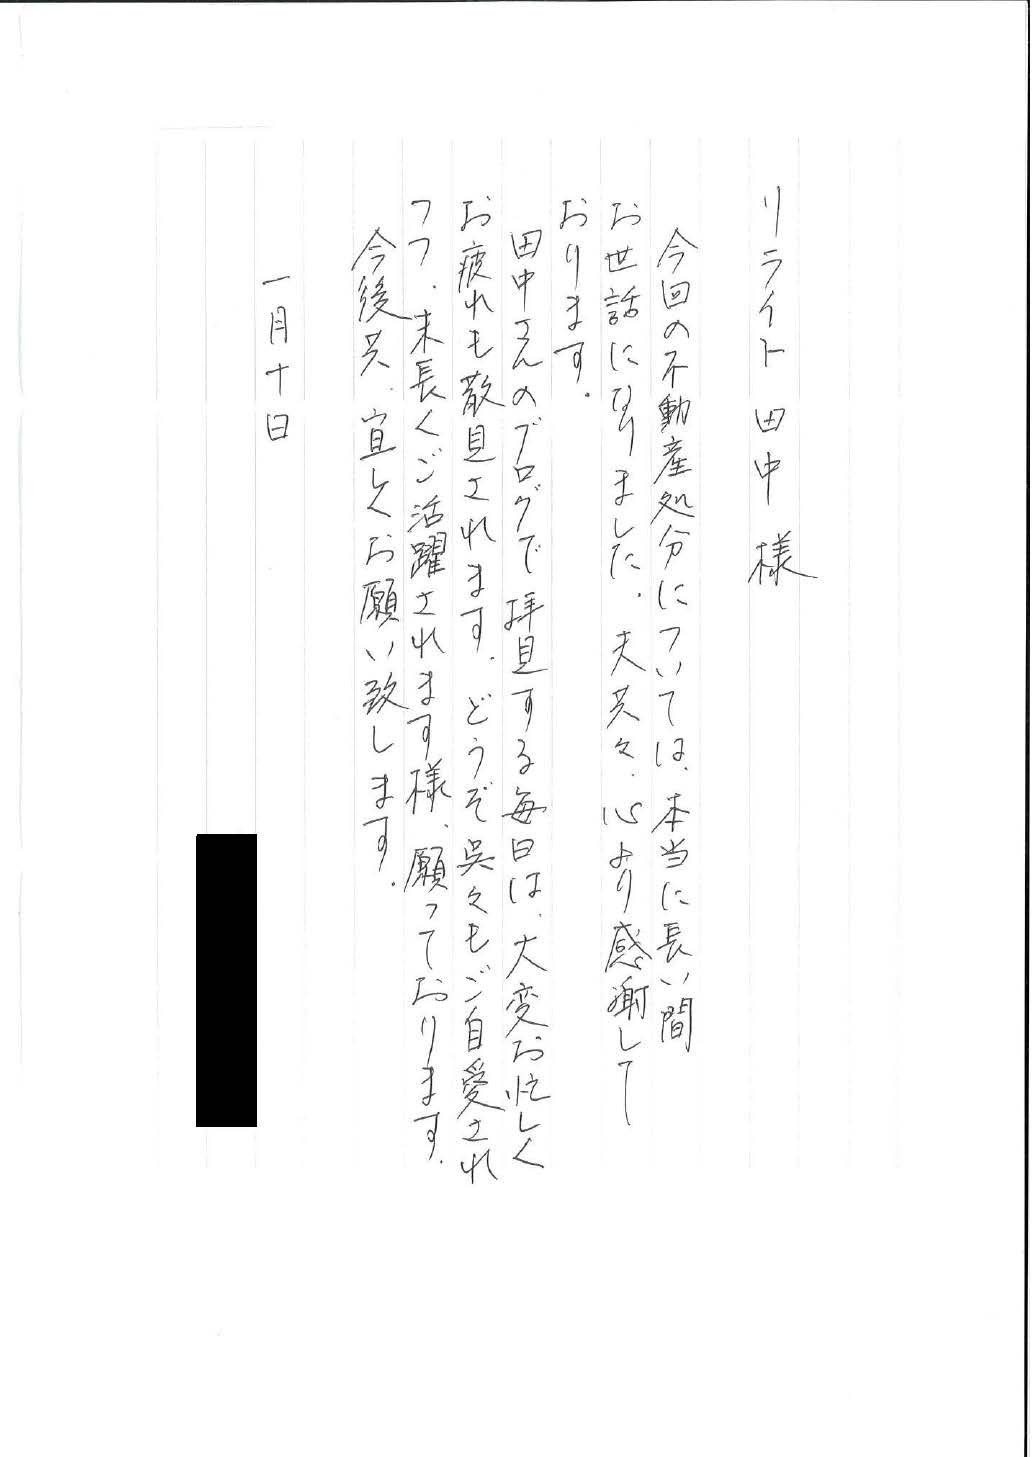 リライト 田中 様
今回の不動産処分については、本当に長い間
お世話になりました。夫共々、心より感謝して
おります。
田中さんのブログで拝見する毎日は、大変お忙しく
お疲れも散見されます。どうぞ呉々もご自愛され
つつ、末長くご活躍されます様、願っております。
今後共、宜しくお願い致します。
一月十日